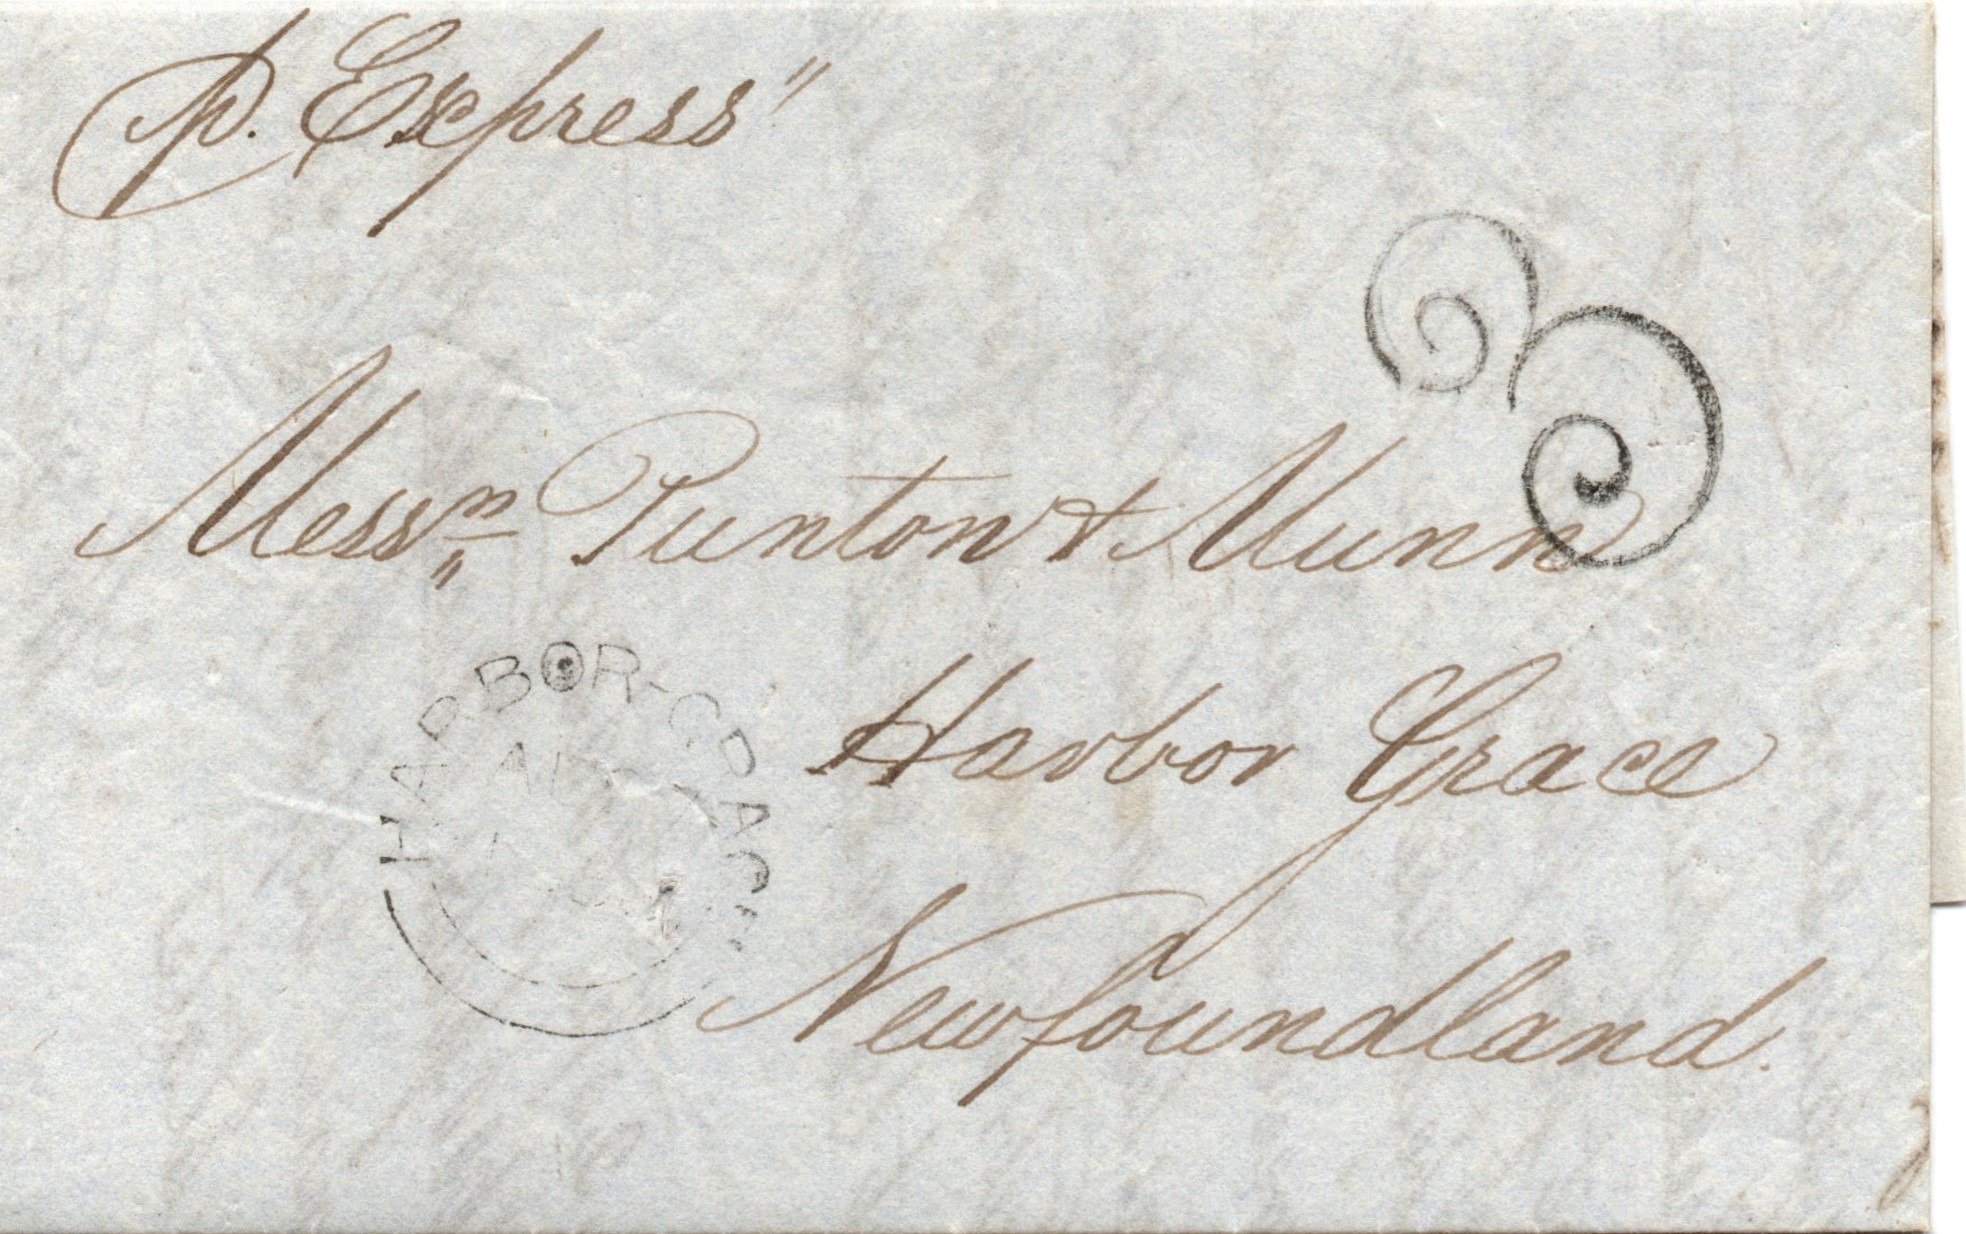 p. Express"
3
Messrs Punton & Munn
HARBOR-GRACE
Harbor Grace
Newfoundland.